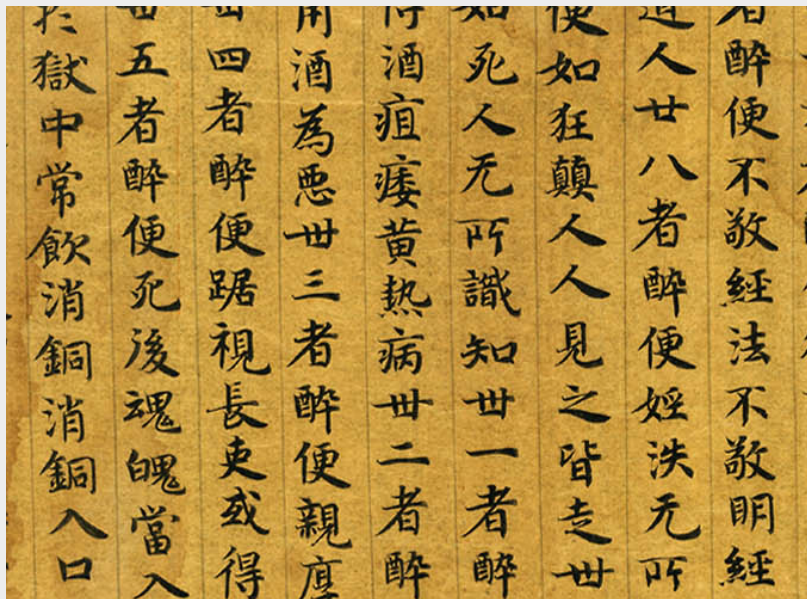 者醉便不敬經法不敬明經
道人廿八者醉便婬泆无所
便如狂顛人人見之皆走丗
如死人无所識知丗一者醉
得酒疸痿黄热病丗二者醉
用酒為悪丗三者醉便親厚
丗四者醉便踞視長吏或得
丗五者醉便死後魂魄當入
於獄中常飲消銅消銅入口